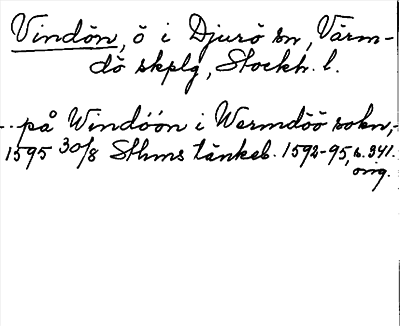 Vindön, ö i Djurö sn, Värm-
dö skplg, Stockh. l.
... på Windöön i Wermdöö sokn,-
1595 30/8 Sthms tänkeb. 1592-95, s. 341.
orig.